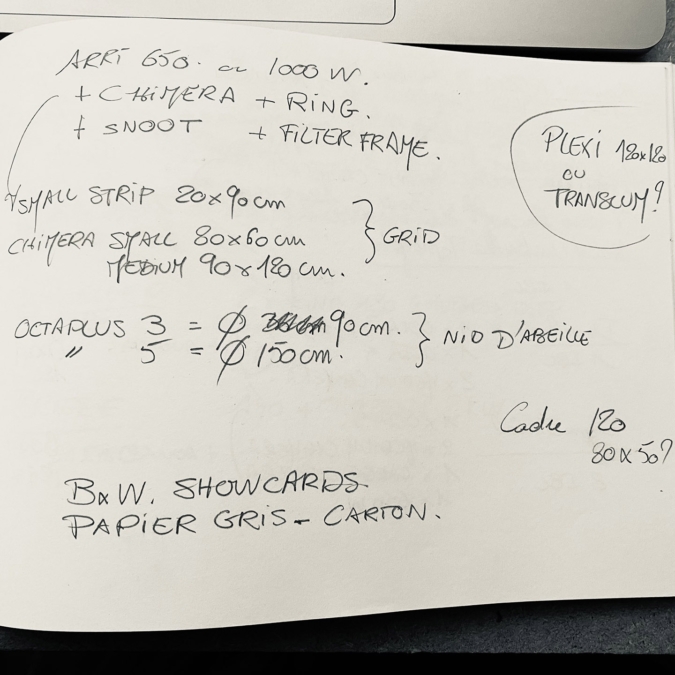 ARRI 650. ou 1000 W.
+ CHIMERA + RING.
+ SNOOT + FILTER FRAME.
PLEXI 120x120
OU
TRANSLUM?
SMALL STRIP 20x90cm
CHIMERA SMALL 80x60cm
MEDIUM 90x120 cm.
} GRID
OCTAPLUS 3 = Ø 90cm.
〃 5 = Ø 150cm.
} NID D'ABEILLE
Cadre 120
80x50?
B&W. SHOWCARDS
PAPIER GRIS - CARTON.